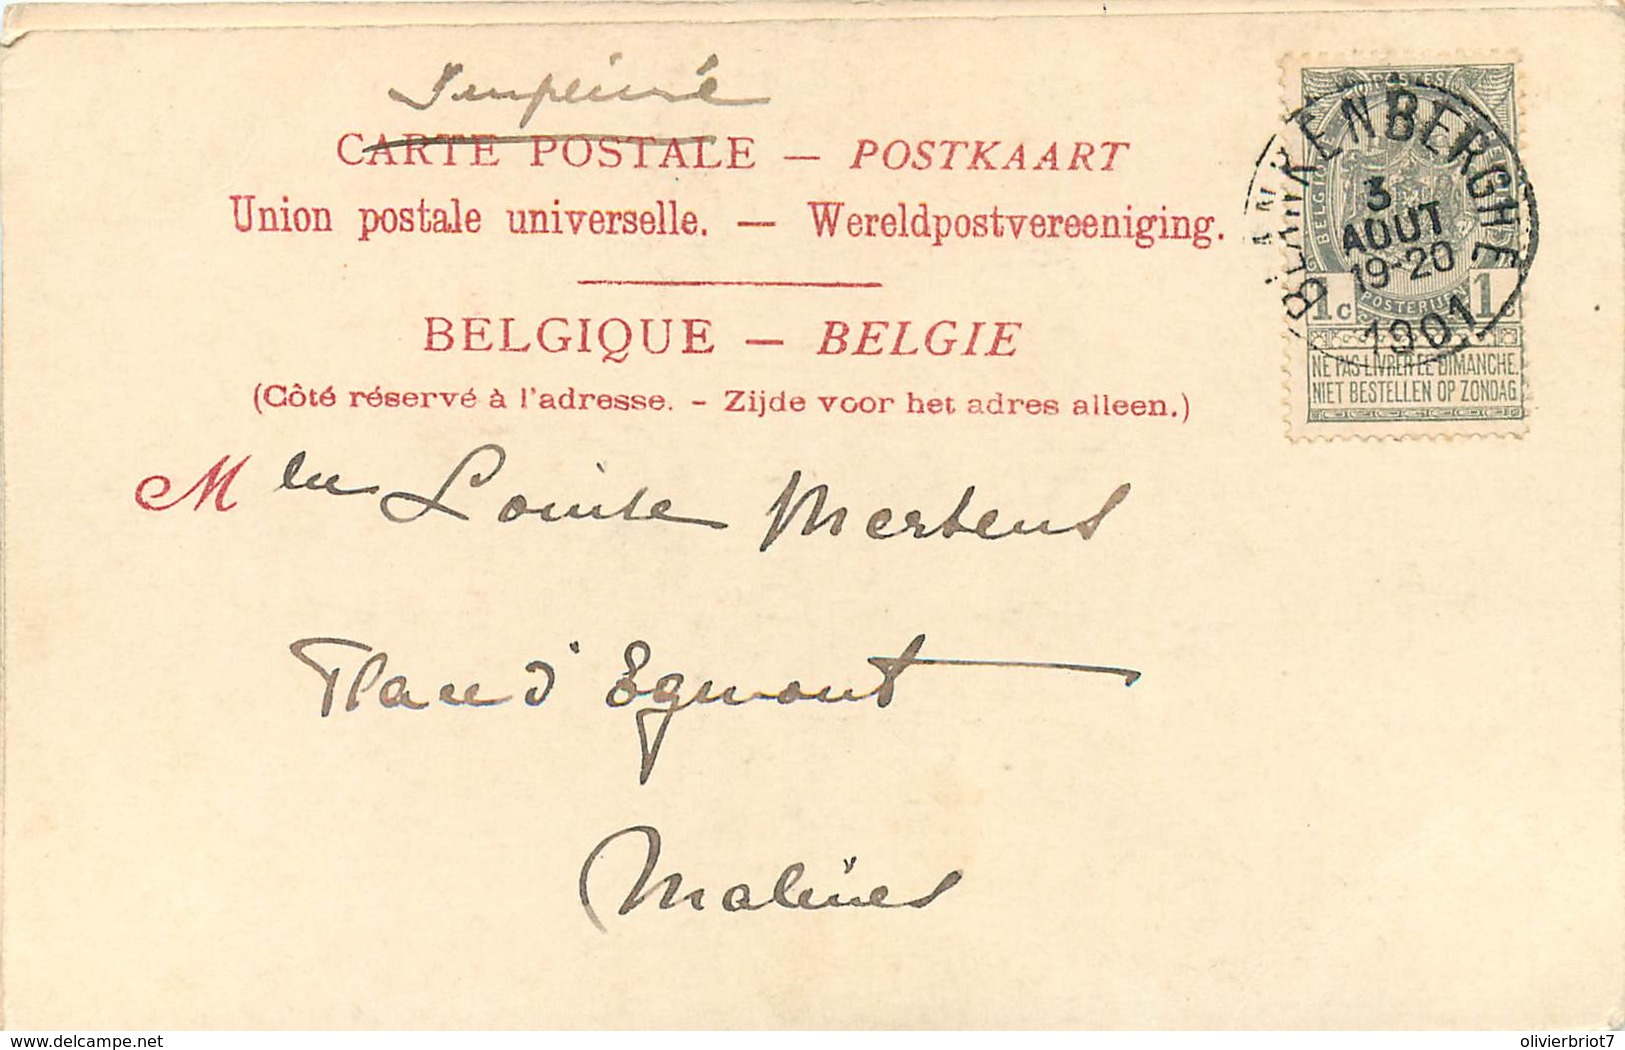 Imprimé
CARTE POSTALE — POSTKAART
Union postale universelle. — Wereldpostvereeniging.
BELGIQUE — BELGIE
(Côté réservé à l'adresse. - Zijde voor het adres alleen.)
Mlle Louise Mertens
Place d'Egmont
Malines
BLANKENBERGHE
3
AOUT
19-20
1901
POSTES
BELGIQUE
POSTERIJEN
1c 1c
NE PAS LIVRER LE DIMANCHE.
NIET BESTELLEN OP ZONDAG
delcampe.net
olivierbriot7